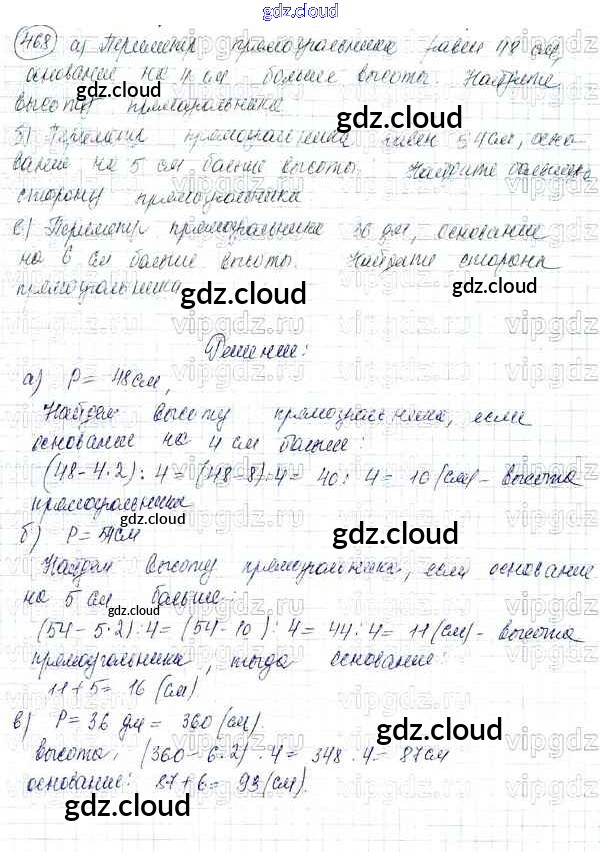 gdz.cloud
468 а) Периметр прямоугольника равен 48 см,
основание на 4 см больше высоты. Найдите
высоту прямоугольника
gdz.cloud
б) Периметр прямоугольника равен 54 см, осно-
вание на 5 см больше высоты. Найдите
сторону прямоугольника.
в) Периметр прямоугольника 36 дм, основание
на 6 см больше высоты. Найдите стороны
прямоугольника
gdz.cloud
Решение:
а) P = 48 см,
Найдем высоту прямоугольника, если
основание на 4 см больше:
(48-4·2):4=(48-8):4=40:4=10 (см) - высота
прямоугольника
gdz.cloud
б) P=54см
Найдем высоту прямоугольника, если основание
на 5 см больше:
gdz.cloud
(54-5·2):4=(54-10):4=44:4=11(см)- высота
прямоугольника, тогда основание:
11+5=16 (см)
gdz.cloud
в) P=36 дм = 360 (см).
gdz.cloud
высота: (360-6·2):4=348:4=87см
основание: 87+6=93(см).
gdz.cloud
gdz.cloud